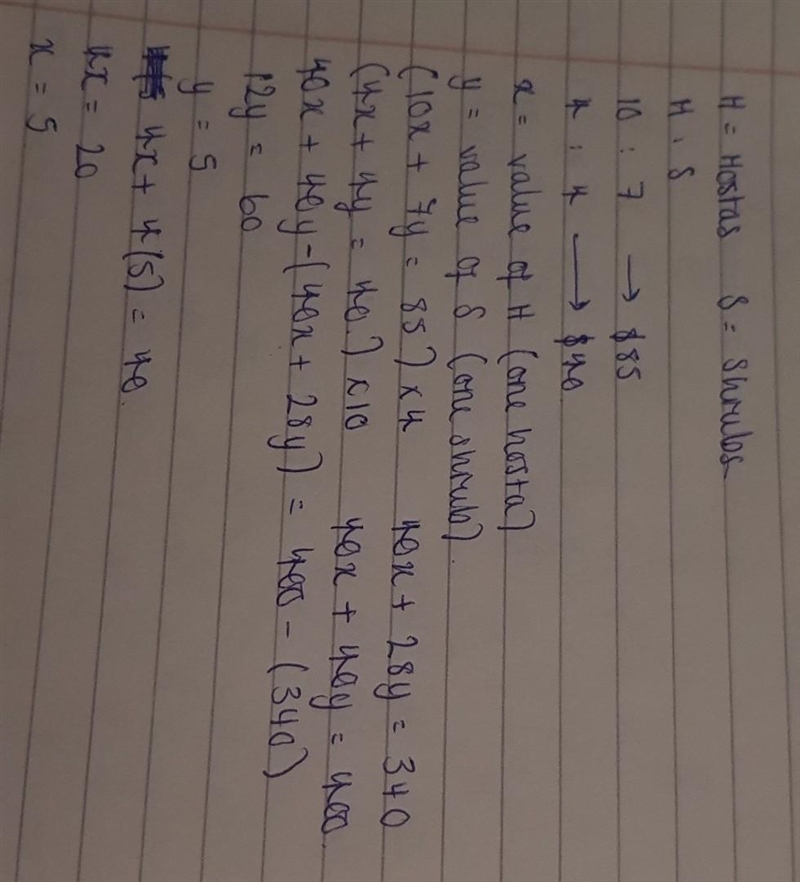 H = Hostas S = Shrubs
H : S
10 : 7 → $85
4 : 4 → $40
x = value of H (one hosta)
y = value of S (one shrub).
(10x + 7y = 85) x 4 40x + 28y = 340
(4x + 4y = 40.) x 10 40x + 40y = 400.
40x + 40y - (40x + 28y) = 400 - (340)
12y = 60
y = 5
4x + 4(5) = 40.
4x = 20
x = 5